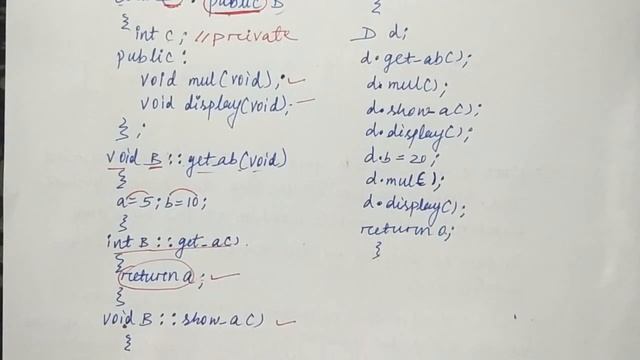 : public B
{
int c; //private
public:
void mul(void);
void display(void);
};
void B::get_ab(void)
{
a=5; b=10;
}
int B::get_a()
{
return a;
}
void B::show_a()
{
{
D d;
d.get_ab();
d.mul();
d.show_a();
d.display();
d.b=20;
d.mul();
d.display();
return 0;
}